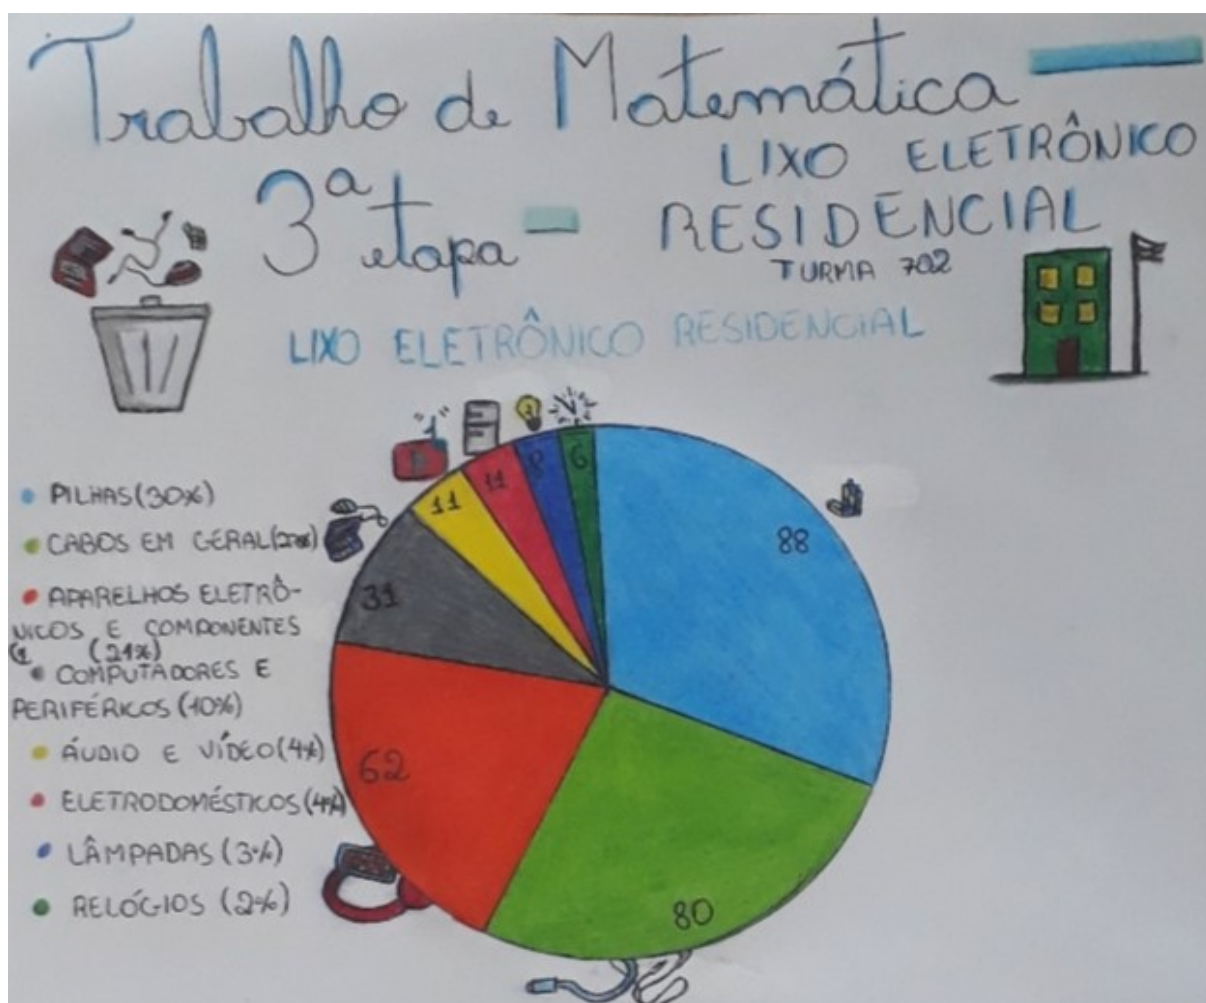 Trabalho de Matemática
3ª etapa
LIXO ELETRÔNICO
RESIDENCIAL
TURMA 702
LIXO ELETRÔNICO RESIDENCIAL
PILHAS (30%)
CABOS EM GERAL
APARELHOS ELETRÔ-
NICOS E COMPONENTES
(21%)
COMPUTADORES E
PERIFÉRICOS (10%)
ÁUDIO E VÍDEO (4%)
ELETRODOMÉSTICOS (4%)
LÂMPADAS (3%)
RELÓGIOS (2%)
88
80
62
31
11
11
8
6